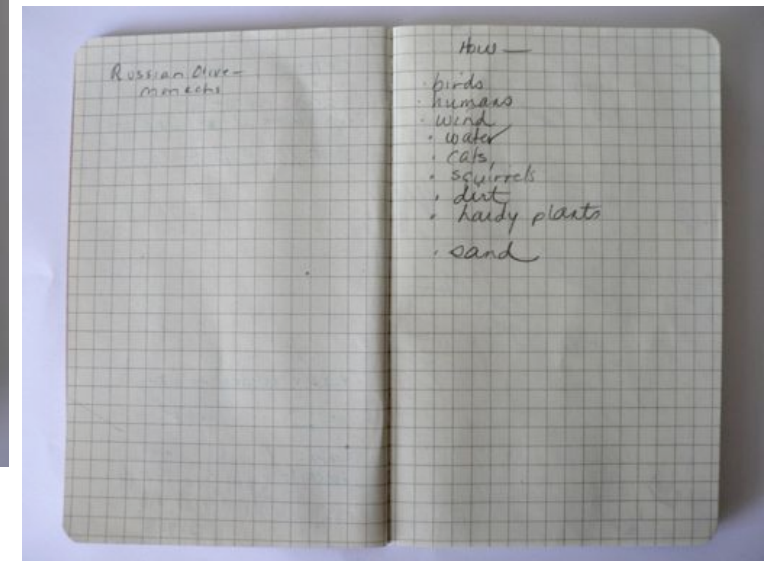 Russian Olive –
monachs
How —
· birds
· humans
· wind
· water
· cats,
· squirrels
· dirt
· hardy plants
· sand